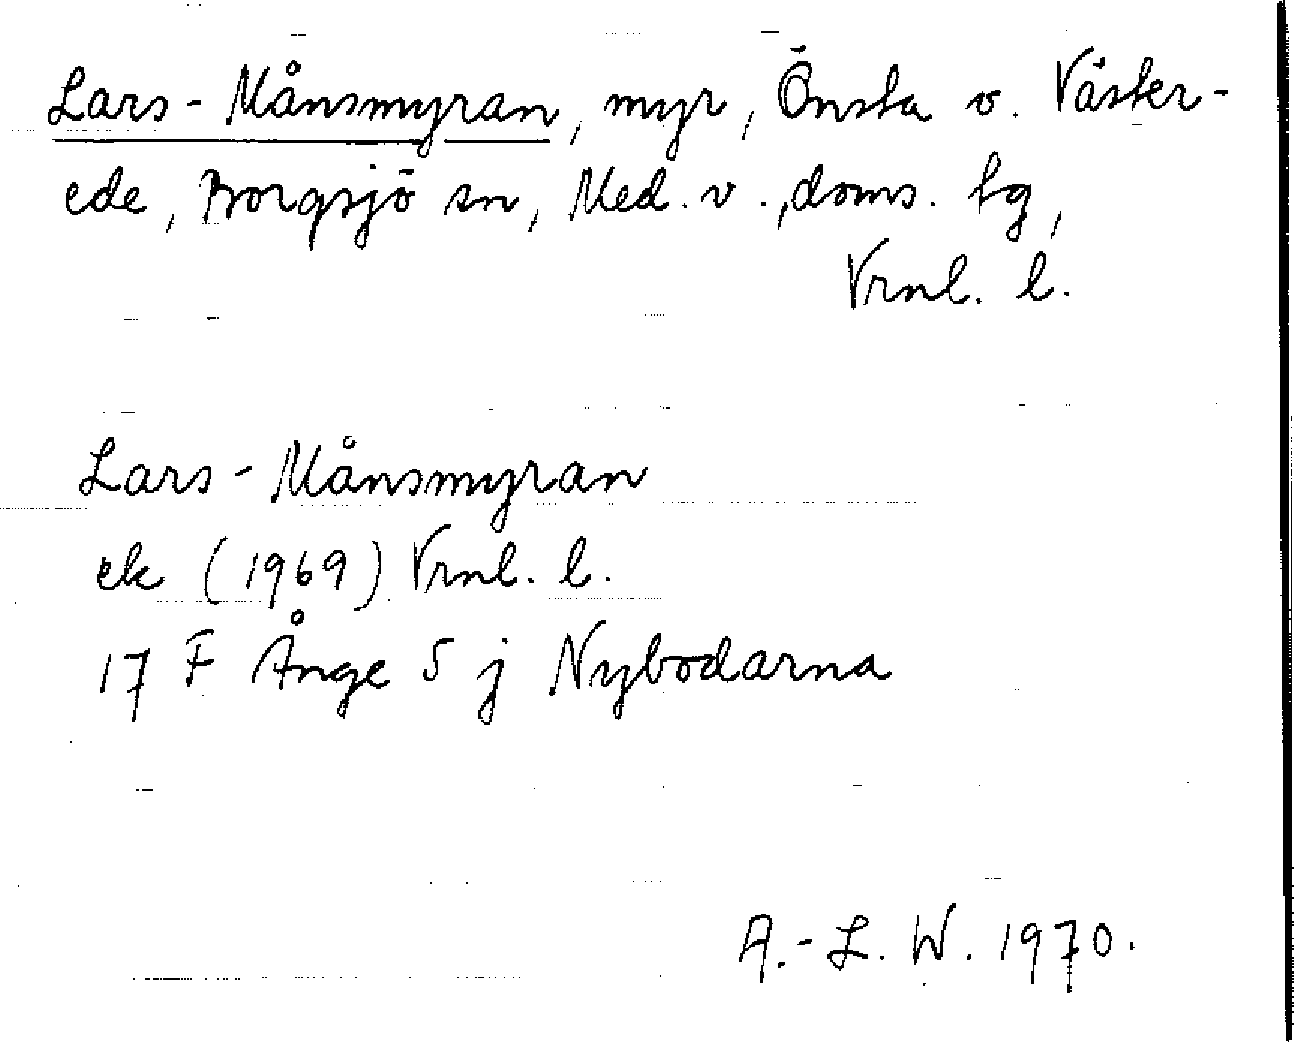 Lars-Månsmyran, myr, Önsta o. Väster-
ede, Borgsjö sn, Med. v., doms. lg,
Vrnl. l.
Lars-Månsmyran
ek (1969) Vrnl. l.
17 F Ånge 5 j Nybodarna
A.-L. W. 1970.